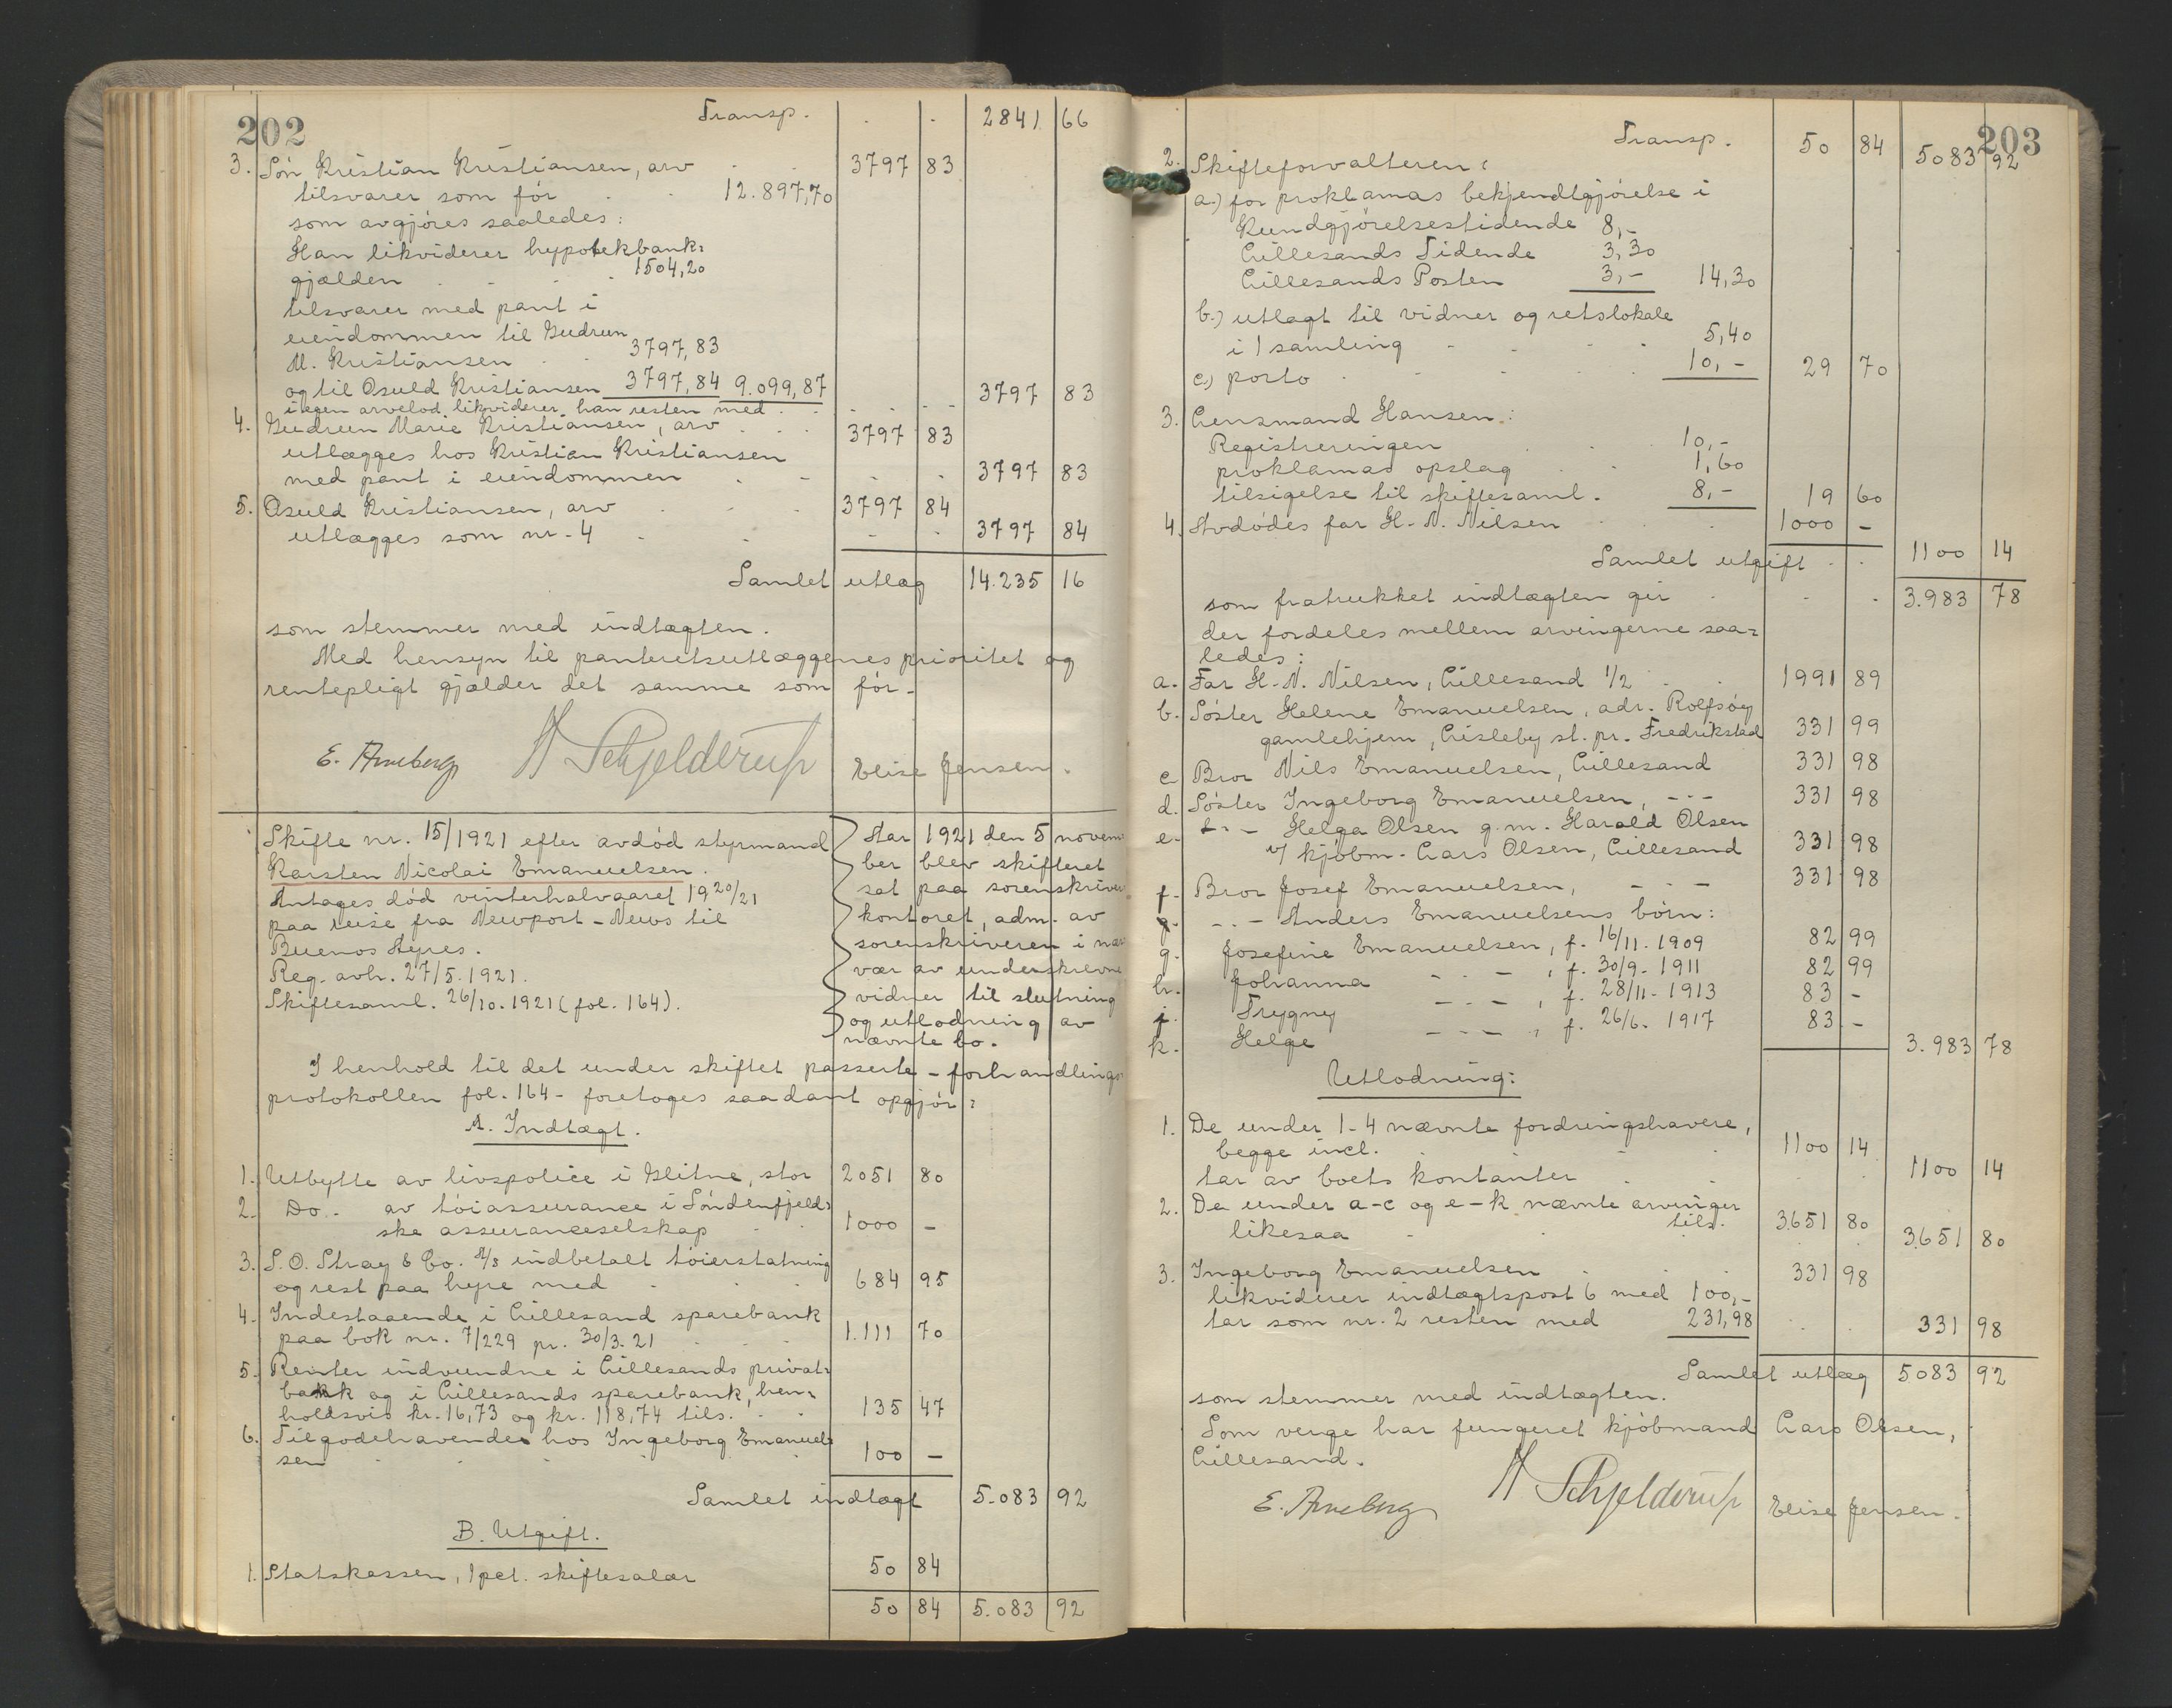 202
Transp. 2841 66
3. Søn Kristian Kristiansen, arv 3797 83
tilsvarer som før 12.897,70
som avgjøres saaledes:
Han likviderer hypotekbank-
gjælden 1504,20
tilsvarer med pant i
eiendommen til Gudrun
M. Kristiansen 3797,83
og til Osuld Kristiansen 3797,84 9.099,87
i egen arvelod likviderer han resten med 3797 83
4. Gudrun Marie Kristiansen, arv 3797 83
utlægges hos Kristian Kristiansen
med pant i eiendommen 3797 83
5. Osuld Kristiansen, arv 3797 84
utlægges som nr. 4 3797 84
Samlet utlæg 14.235 16
som stemmer med indtægten.
Med hensyn til panteretsutlæggenes prioritet og
rentepligt gjælder det samme som før.
E. Arneberg H Schjelderup Elise Jensen.
Skifte nr. 15/1921 efter avdød styrmand
Karsten Nicolai Emanuelsen.
Antages død vinterhalvaaret 1920/21
paa reise fra Newport-News til
Buenos Ayres.
Reg. avh. 27/5.1921.
Skiftesaml. 26/10.1921 (fol. 164).
Aar 1921 den 5 novem-
ber blev skifteret
sat paa sorenskriver
kontoret, adm. av
sorenskriveren i nær
vær av underskrevne
vidner til slutning
og utlodning av
nævnte bo.
I henhold til det under skiftet passerte - forhandlings-
protokollen fol. 164 - foretoges saadant opgjør:
A. Indtægt.
1. Utbytte av livspolice i Glitne, stor 2051 80
2. Do. av tøiassurance i Søndenfjeld-
ske assuranceselskap 1000 -
3. S. O. Stray & Co. A/S indbetalt tøierstatning
og rest paa hyre med 684 95
4. Indestaaende i Lillesand sparebank
paa bok nr. 7/229 pr. 30/3.21 1.111 70
5. Renter indvundne i Lillesands privat-
bank og i Lillesands sparebank, hen-
holdsvis kr. 16,73 og kr. 118,74 tils. 135 47
6. Tilgodehavende hos Ingeborg Emanuel-
sen 100 -
Samlet indtægt 5.083 92
B. Utgift.
1. Statskassen, 1 pct. skiftesalær 50 84
50 84 5.083 92
203
Transp. 50 84 5083 92
2. Skifteforvalteren:
a.) for proklamas bekjendtgjørelse i
Kundgjørelsestidende 8,-
Lillesands Tidende 3,30
Lillesands Posten 3,- 14,30
b.) utlagt til vidner og retslokale
i 1 samling 5,40
c.) porto 10,- 29 70
3. Lensmand Hansen:
Registreringen 10,-
proklamas opslag 1,60
tilsigelse til skiftesaml. 8,- 19 60
4. Avdødes far H. N. Nilsen 1000 -
Samlet utgift 1100 14
som fratrukket indtægten gir 3.983 78
der fordeles mellem arvingerne saa-
ledes:
a. Far H. N. Nilsen, Lillesand 1/2 1991 89
b. Søster Helene Emanuelsen, adr. Rolfsøy
gamlehjem, Lisleby st. pr. Fredrikstad 331 99
c. Bror Nils Emanuelsen, Lillesand 331 98
d. Søster Ingeborg Emanuelsen, - - - 331 98
e. - - - Helga Olsen g. m. Harald Olsen
v/ kjøbm. Lars Olsen, Lillesand 331 98
f. Bror Josef Emanuelsen, - - - 331 98
- - - Anders Emanuelsens børn:
g. Josefine Emanuelsen, f. 16/11. 1909 82 99
h. Johanna - - - , f. 30/9. 1911 82 99
j. Trygny - - - , f. 28/11. 1913 83 -
k. Helge - - - , f. 26/6. 1917 83 -
3.983 78
Utlodning:
1. De under 1-4 nævnte fordringshavere,
begge incl. 1100 14
tar av boets kontanter 1100 14
2. De under a-c og e-k nævnte arvinger
tils. 3.651 80
likesaa 3.651 80
3. Ingeborg Emanuelsen 331 98
likviderer indtægtspost 6 med 100,-
tar som nr. 2 resten med 231,98 331 98
Samlet utlæg 5083 92
som stemmer med indtægten.
Som verge har fungeret kjøbmand Lars Olsen,
Lillesand.
E. Arneberg H Schjelderup Elise Jensen.